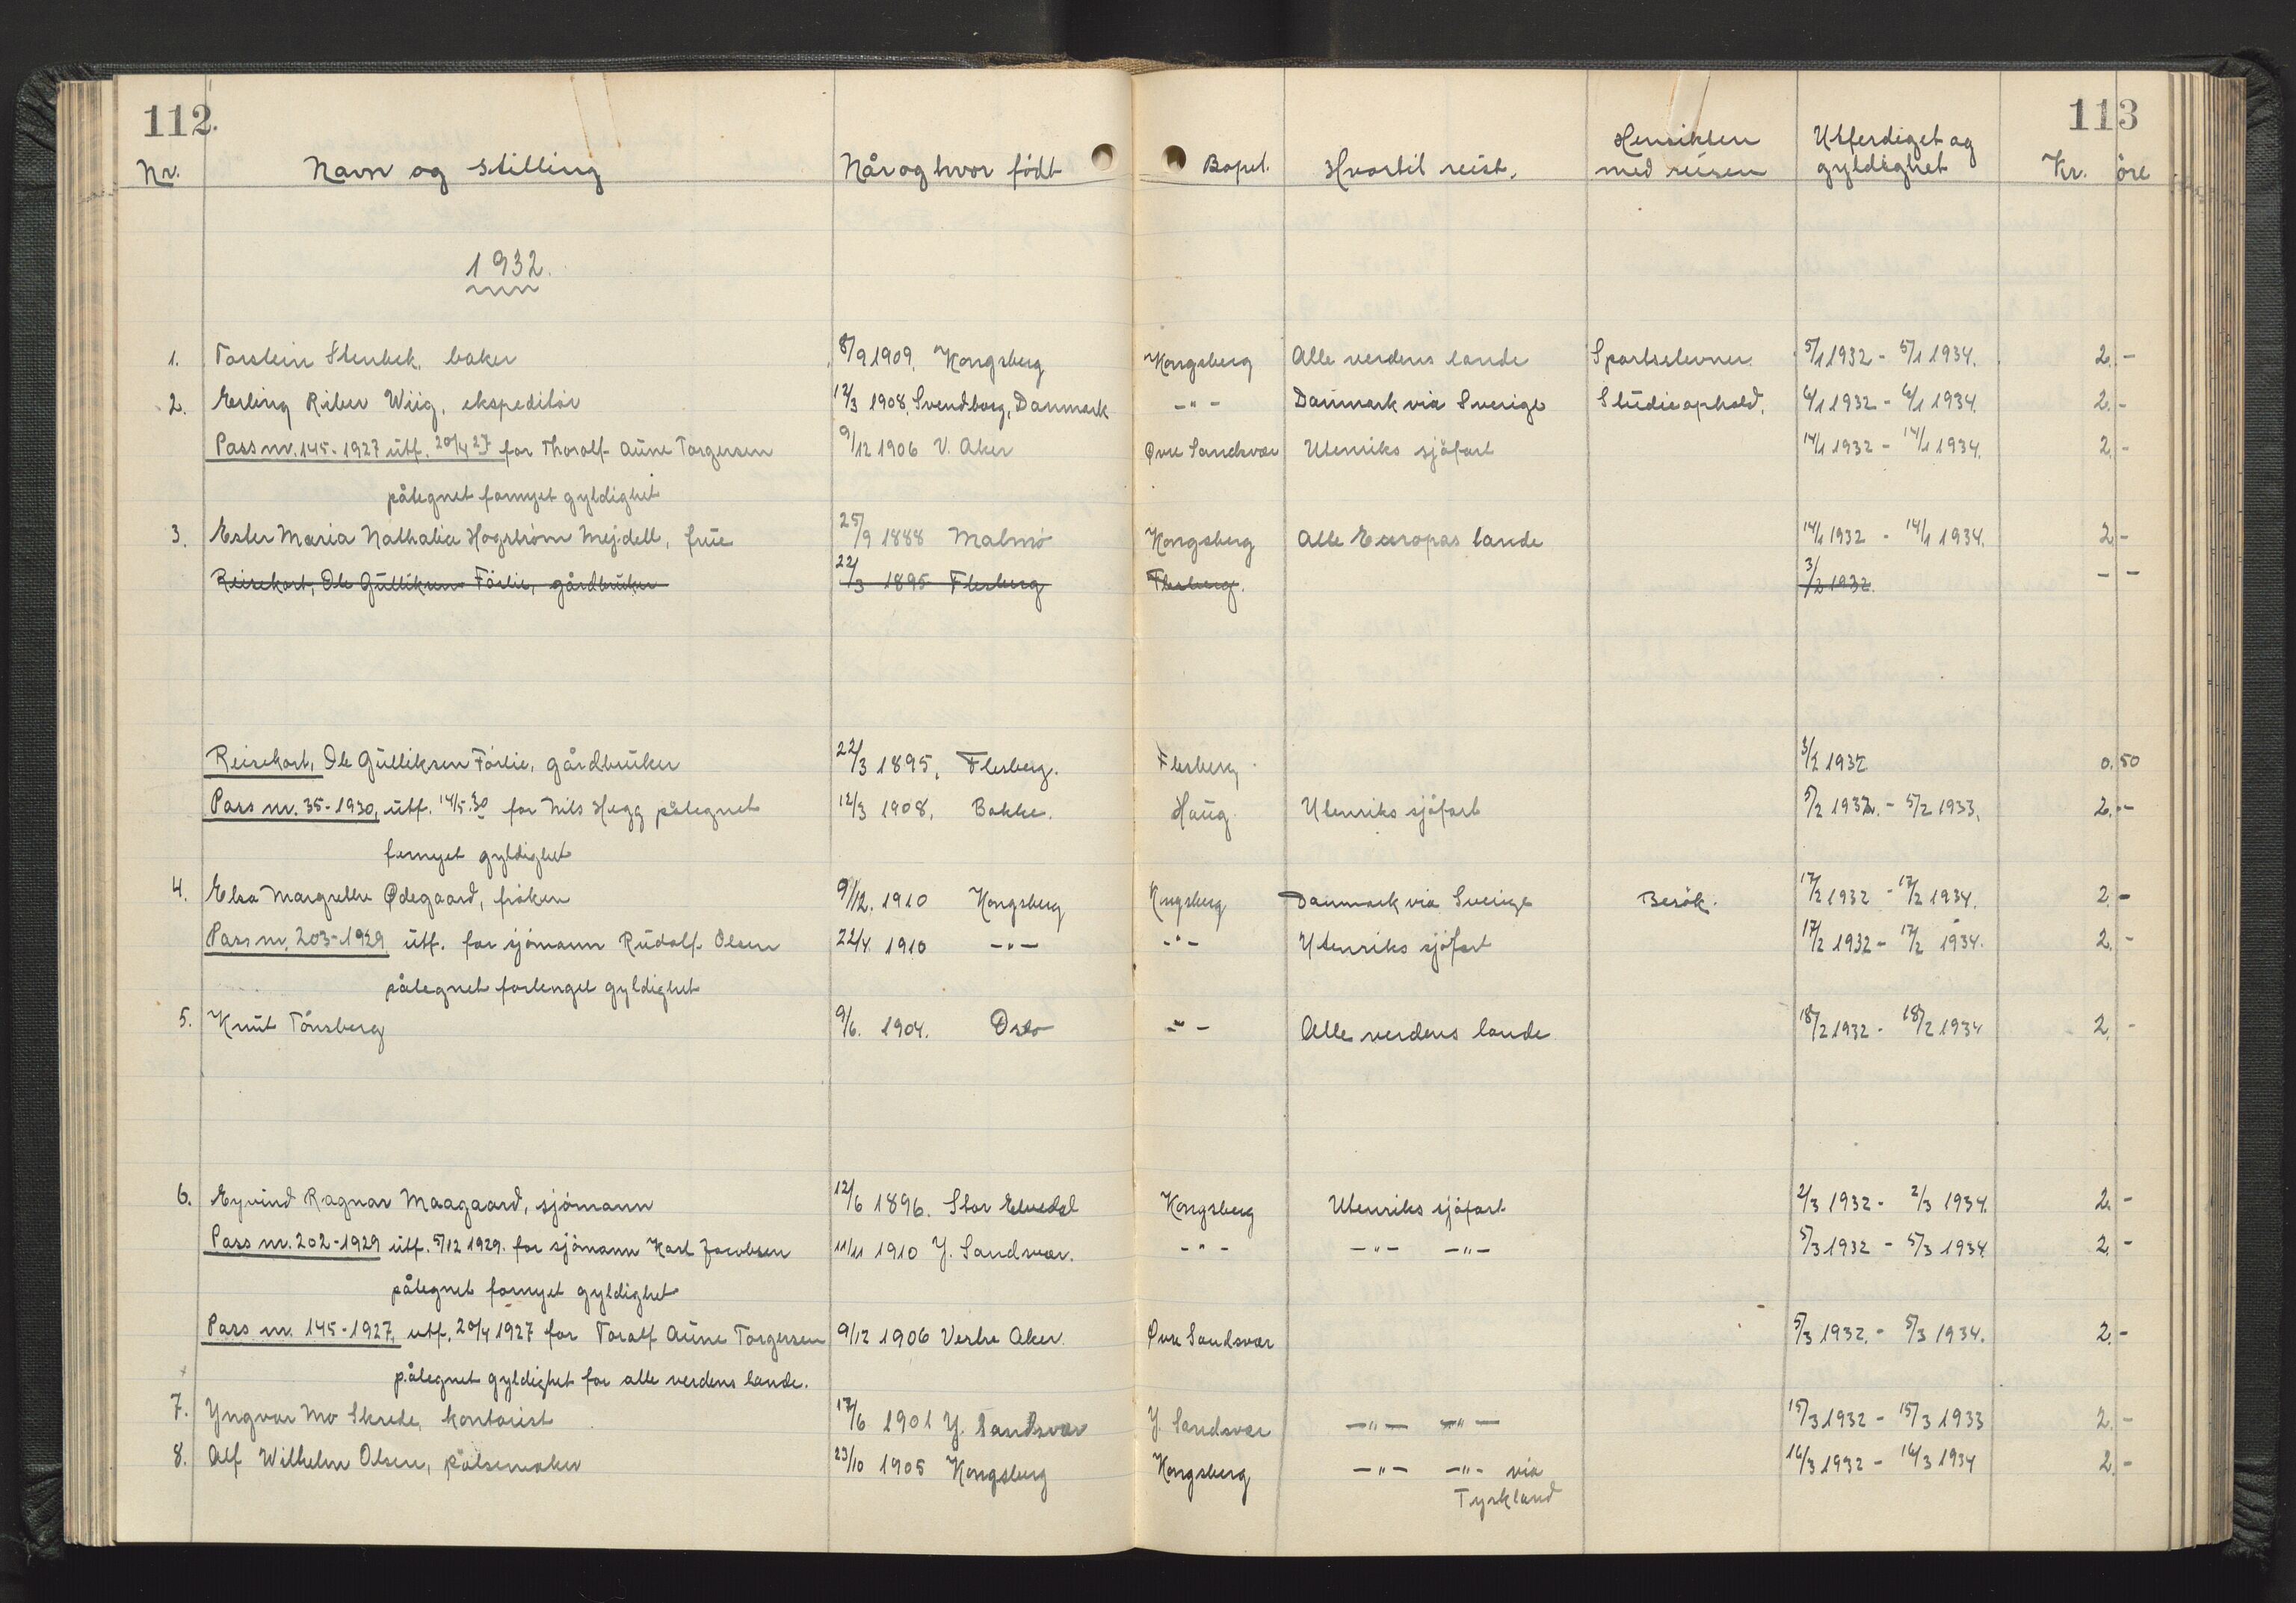 112. 113
Nr. Navn og stilling Når og hvor født Bopel. Hvortil reist. Hensikten med reisen Utferdiget og gyldighet Kr. øre
1932.
1. Torstein Stenbek, baker 8/9 1909. Kongsberg Kongsberg Alle verdens lande Sportsstevner. 5/1 1932 - 5/1 1934. 2. -
2. Erling Riber Wiig, ekspeditør 12/3 1908, Svendborg, Danmark -"- Danmark via Sverige Studieophold. 6/1 1932 - 6/1 1934. 2. -
Pass nr. 145-1927 utf. 20/4 27 for Thoralf Aune Torgersen 9/12 1906 V. Aker Øvre Sandsvær Utenriks sjøfart 14/1 1932 - 14/1 1934. 2. -
påtegnet fornyet gyldighet
3. Ester Maria Nathalia Hogstrøm Mejdell, frue 25/9 1888 Malmø Kongsberg Alle Europas lande 14/1 1932 - 14/1 1934. 2 -
Reisekort, Ole Gulliksen Førlie, gårdbruker 22/3 1895 Flesberg Flesberg. 3/2 1932. - -
Reisekort, Ole Gulliksen Førlie, gårdbruker 22/3 1895, Flesberg. Flesberg. 3/2 1932 0. 50
Pass nr. 35-1930, utf. 14/5.30 for Nils Hegg påtegnet 12/3 1908, Bakke. Haug. Utenriks sjøfart 5/2 1932. - 5/2 1933. 2. -
fornyet gyldighet
4. Elsa Margrethe Ødegaard, frøken 9/12. 1910 Kongsberg Kongsberg Danmark via Sverige Besøk. 17/2 1932 - 17/2 1934. 2. -
Pass nr. 203-1929 utf. for sjømann Rudolf Olsen 22/4. 1910 -"- -"- Utenriks sjøfart 17/2 1932 - 17/2 1934. 2. -
påtegnet forlenget gyldighet
5. Knut Tønsberg 9/6. 1904. Oslo -"- Alle verdens lande 18/2 1932 - 18/2 1934 2. -
6. Eyvind Ragnar Maagaard, sjømann 12/6 1896. Stor Elvedal Kongsberg Utenriks sjøfart 2/3 1932 - 2/3 1934. 2. -
Pass nr. 202-1929 utf. 5/12 1929. for sjømann Karl Jacobsen 11/11 1910 Y. Sandsvær. -"- -"- -"- 5/3 1932 - 5/3 1934 2. -
påtegnet fornyet gyldighet
Pass nr. 145-1927, utf. 20/4 1927 for Toralf Aune Torgersen 9/12 1906 Vestre Aker. Øvre Sandsvær 5/3 1932. - 5/3 1934. 2. -
påtegnet gyldighet for alle verdens lande.
7. Yngvar Mo Skrede, kontorist 17/6 1901 Y. Sandsvær Y. Sandsvær -"- -"- 15/3 1932 - 15/3 1933 2. -
8. Alf Wilhelm Olsen, pølsemaker 23/10 1905 Kongsberg Kongsberg -"- -"- via 16/3 1932 - 16/3 1934 2. -
Tyskland